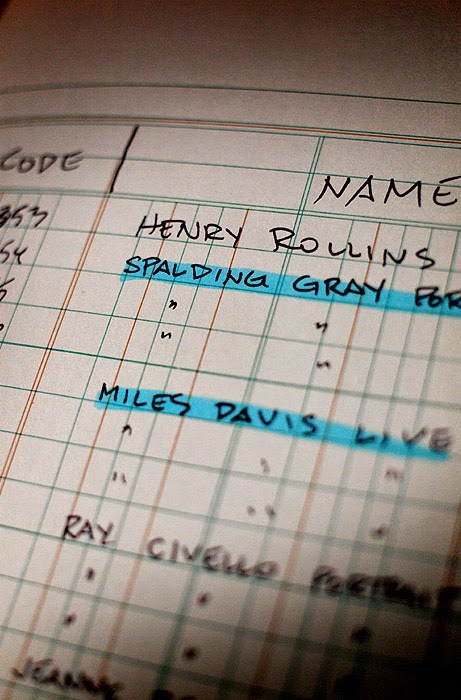 CODE NAME
353 HENRY ROLLINS
54 SPALDING GRAY FOR
" "
" "
MILES DAVIS LIVE
" " "
" " "
RAY CIVELLO PORTRAIT
" " "
" " "
JEANNE